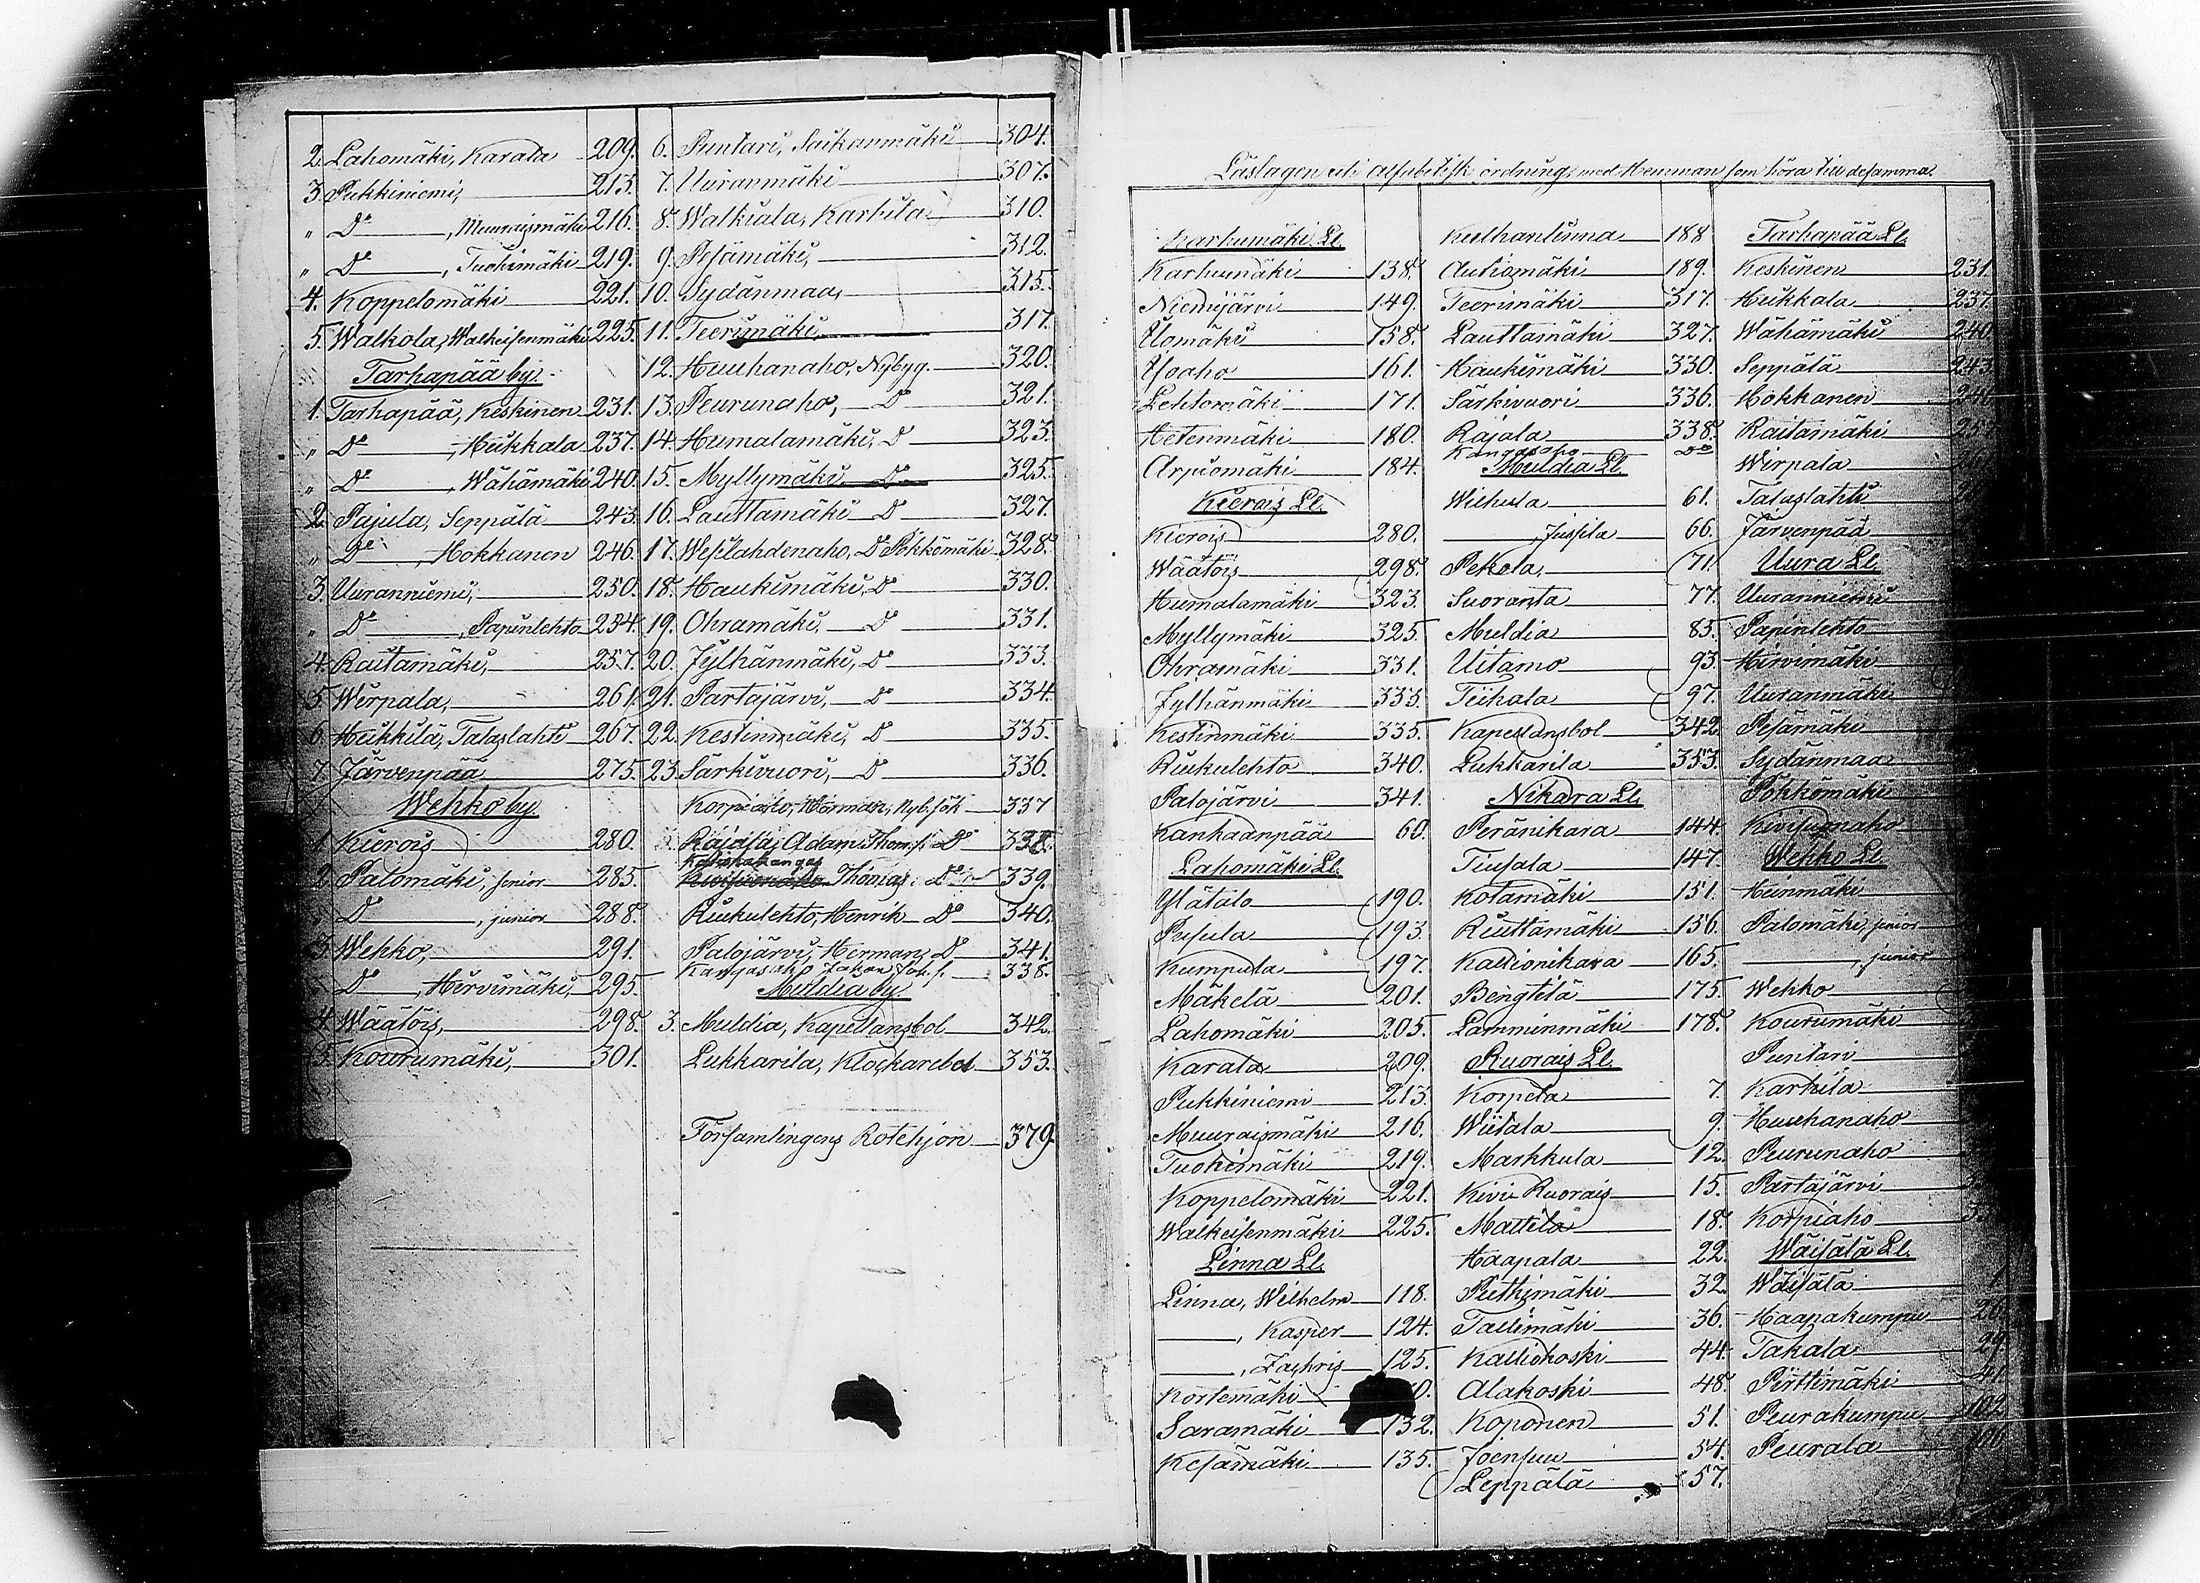 2. Lahomäki, Karala 209.
3. Pukkiniemi, 213.
" Do, Muuraismäki 216.
" Do, Tuohimäki 219.
4. Koppelomäki 221.
5. Walkola, Walkeisenmäki 225.
Tarhapää by.
1. Tarhapää, Keskinen 231.
" Do, Heikkala 237.
" Do, Wähämäki 240.
2. Pajula, Seppälä 243.
" Do, Hokkanen 246.
3. Uuranniemi, 250.
" Do, Papinlehto 254.
4. Raitamäki, 257.
5. Wirpala, 261.
6. Heikkilä, Talaslahti 267.
7. Järvenpää 275.
Wehko by.
1. Kierois 280.
2. Palomäki, senior 285.
Do, junior 288.
3. Wehko, 291.
" Do, Hirvimäki, 295.
4. Wäätöis, 298.
5. Kourumäki, 301.
6. Puntari, Saikanmäki 304.
7. Uuranmäki 307.
8. Walkiala, Karhila 310.
9. Pesämäki, 312.
10. Sydänmaa, 315.
11. Teerimäki, 317.
12. Huuhanaho, Nybyg. 320.
13. Peurunaho, Do 321.
14. Humalamäki, Do 323.
15. Myllymäki Do 325.
16. Lauttamäki Do 327.
17. Wesilahdenaho, Do Pökkömäki 328.
18. Haukimäki, Do 330.
19. Ohramäki, Do 331.
20. Jylhänmäki, Do 333.
21. Partajärvi, Do 334.
22. Kestinmäki, Do 335.
23. Särkivuori, Do 336.
Korpiaho, Herman, Nyb. sök 337
Rajala, Adam Thom. s. Do 338.
Thomas, Do 339.
Riukulehto, Henrik Do 340.
Palojärvi, Herman, Do 341.
Kangasaho Johan Joh. s. 338.
Muldia by.
3. Muldia, Kapellansbol 342.
Lukkarila, Klockarebol 353.
Församlingens Rotehjon 379.
Läslagen uti alfabetisk ordning, med Hemman som höra till desamma.
Karhumäki Ll.
Karhumäki 138.
Niemijärvi 149.
Ulomäki 158.
Isoaho 161.
Lehtomäki 171.
Hetenmäki 180.
Arpiomäki 184.
Kierois Ll.
Kierois 280.
Wäätöis 298.
Humalamäki 323.
Myllymäki 325.
Ohramäki 331.
Jylhänmäki 333.
Kestinmäki 335.
Riukulehto 340.
Palojärvi 341.
Kanhaanpää 60.
Lahomäki Ll.
Ylätalo 190.
Pusula 193.
Kumpula 197.
Mäkelä 201.
Lahomäki 205.
Karala 209.
Pukkiniemi 213.
Muuraismäki 216.
Tuohimäki 219.
Koppelomäki 221.
Walkeisenmäki 225.
Linna Ll.
Linna, Wilhelm 118.
, Kasper 124.
, Zachris 125.
Kortemäki
Saramäki 132.
Kesämäki 135.
Keelhanlinna 188
Autiomäki 189.
Teerimäki 317.
Lauttamäki 327.
Haukimäki 330.
Särkivuori 336.
Rajala 338.
Kangasaho Do
Muldia Ll.
Wehula 61.
, Jussila 66.
Pekola, 71.
Suoranta 77.
Muldia 83.
Uitamo 93.
Tiihala 97.
Kapellansbol 342.
Lukkarila 353.
Nikara Ll.
Peränikara 144.
Tiusala 147.
Kotamäki 151.
Riuttamäki 156.
Kallionikara 165.
Bengtilä 175.
Lamminmäki 178.
Ruorais Ll.
Korpela 7.
Wiitala 9.
Markkula 12.
Kivi Ruorais 15.
Mattila 18.
Haapala 22.
Putkimäki 32.
Tallimäki 36.
Kalliokoski 44.
Alakoski 48.
Koponen 51.
Joensuu 54.
Leppälä 57.
Tarhapää Ll.
Keskinen 231.
Heikkala 237.
Wähämäki 240.
Seppälä 243.
Hokkanen 246.
Raitamäki
Wirpala
Talaslahti
Järvenpää
Uura Ll.
Uuranniemi
Papinlehto
Hirvimäki
Uuranmäki
Pesämäki
Sydänmaa
Pökkömäki
Kivisuonaho
Wehko Ll.
Heinmäki
Palomäki, senior
, junior
Wehko
Kourumäki
Puntari
Karhila
Huuhanaho
Peurunaho
Partajärvi
Korpiaho
Wäisälä Ll.
Wäisälä 1.
Haapakumpu 26.
Takala 29.
Pirttimäki 41.
Peurakumpu 102.
Peurala